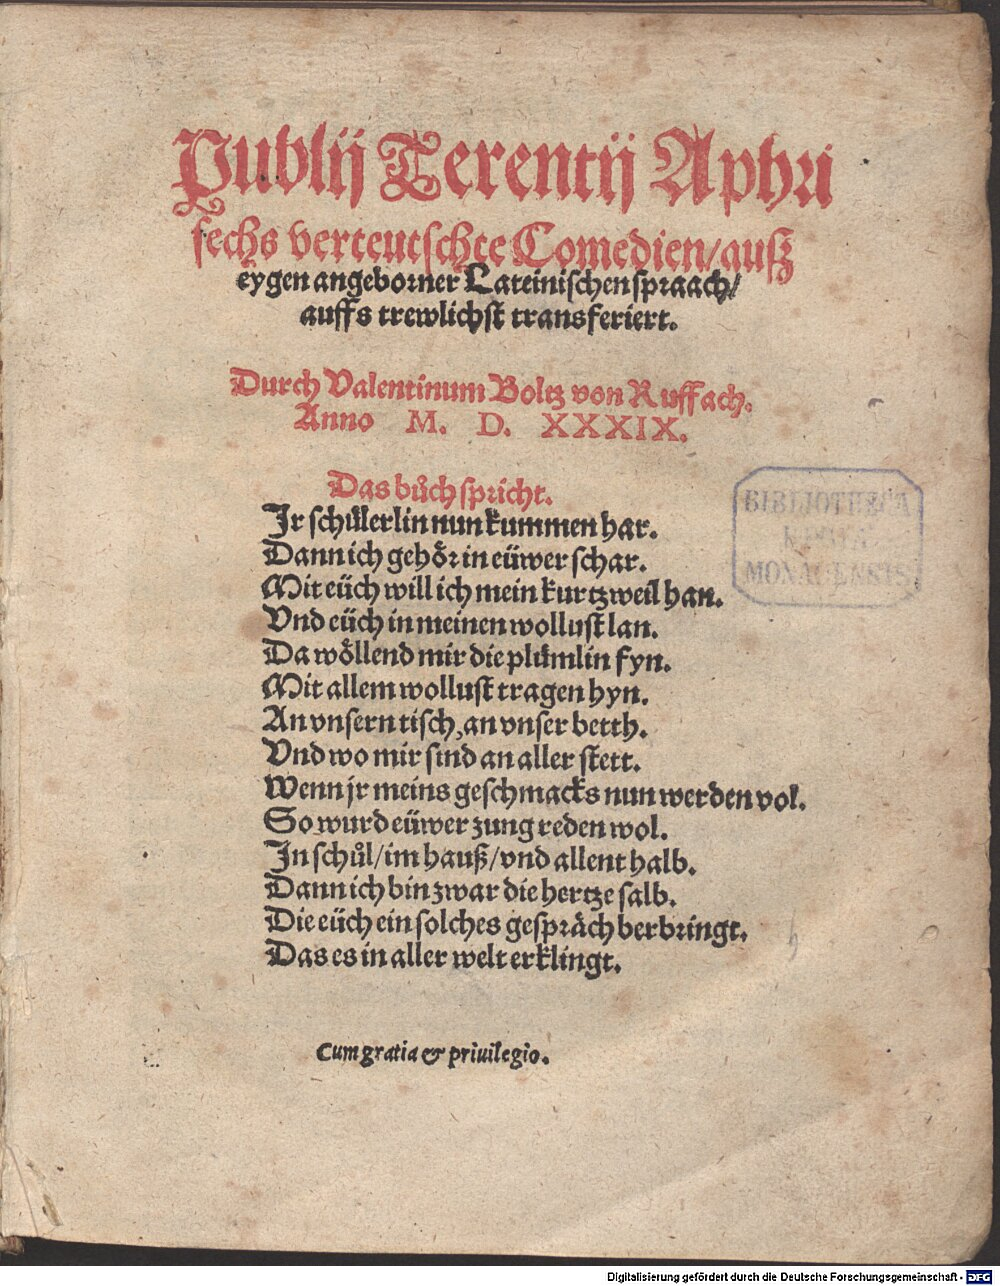 Publij Terentij Aphri
sechs verteutschte Comedien/auß
eygen angeborner Lateinischen spraach/
auffs trewlichst transferiert.
Durch Valentinum Boltz von Ruffach.
Anno M. D. XXXIX.
Das bůch spricht.
Ir schůlerlin nun kummen har.
Dann ich gehör in eüwer schar.
Mit eüch will ich mein kurtzweil han.
Vnd eüch in meinen wollust lan.
Da wöllend mir die plůmlin fyn.
Mit allem wollust tragen hyn.
An vnsern tisch, an vnser betth.
Vnd wo mir sind an aller stett.
Wenn jr meins geschmacks nun werden vol.
So wurd eüwer zung reden wol.
In schůl/im hauß/vnd allent halb.
Dann ich bin zwar die hertze salb.
Die eüch ein solches gespräch berbringt.
Das es in aller welt erklingt.
Cum gratia & priuilegio.
BIBLIOTHECA
REGIA
MONACENSIS
Digitalisierung gefördert durch die Deutsche Forschungsgemeinschaft - DFG